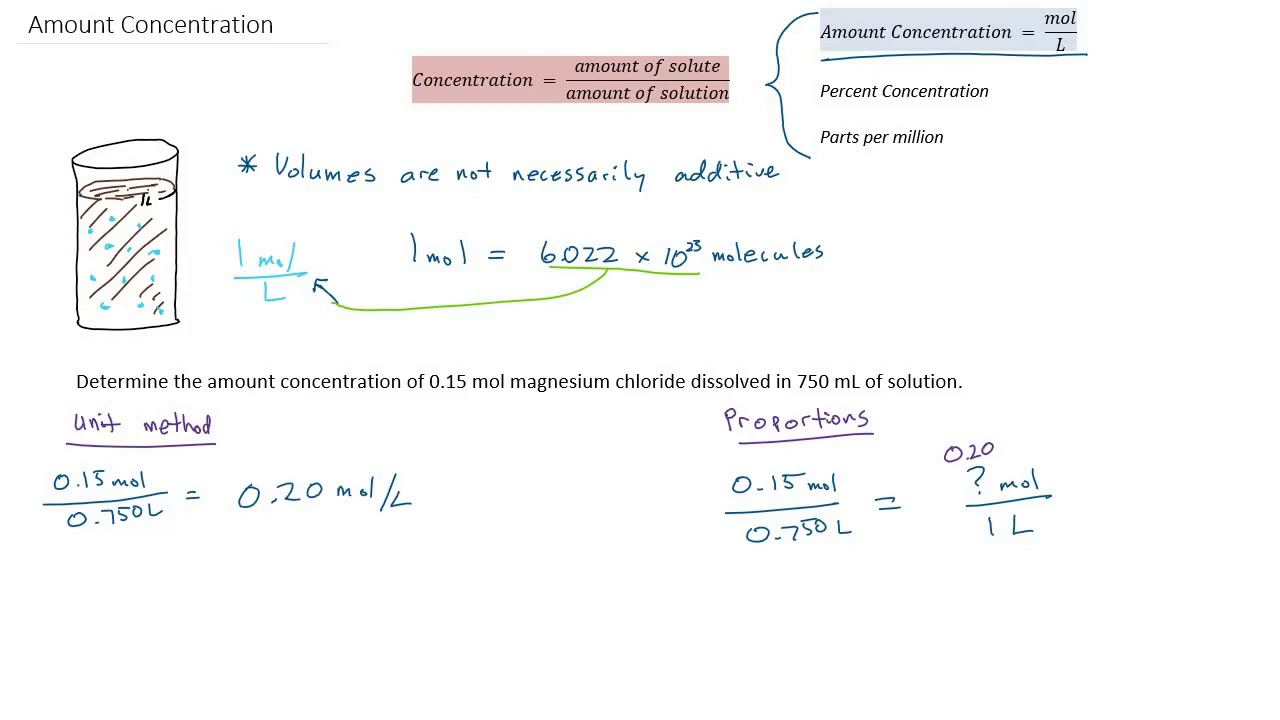 Amount Concentration
Amount Concentration = mol/L
Concentration = amount of solute/amount of solution
Percent Concentration
Parts per million
* Volumes are not necessarily additive
1L
1 mol/L
1 mol = 6.022 × 10^23 molecules
Determine the amount concentration of 0.15 mol magnesium chloride dissolved in 750 mL of solution.
Unit method
0.15 mol/0.750L = 0.20 mol/L
Proportions
0.20
0.15 mol/0.750 L = ? mol/1 L